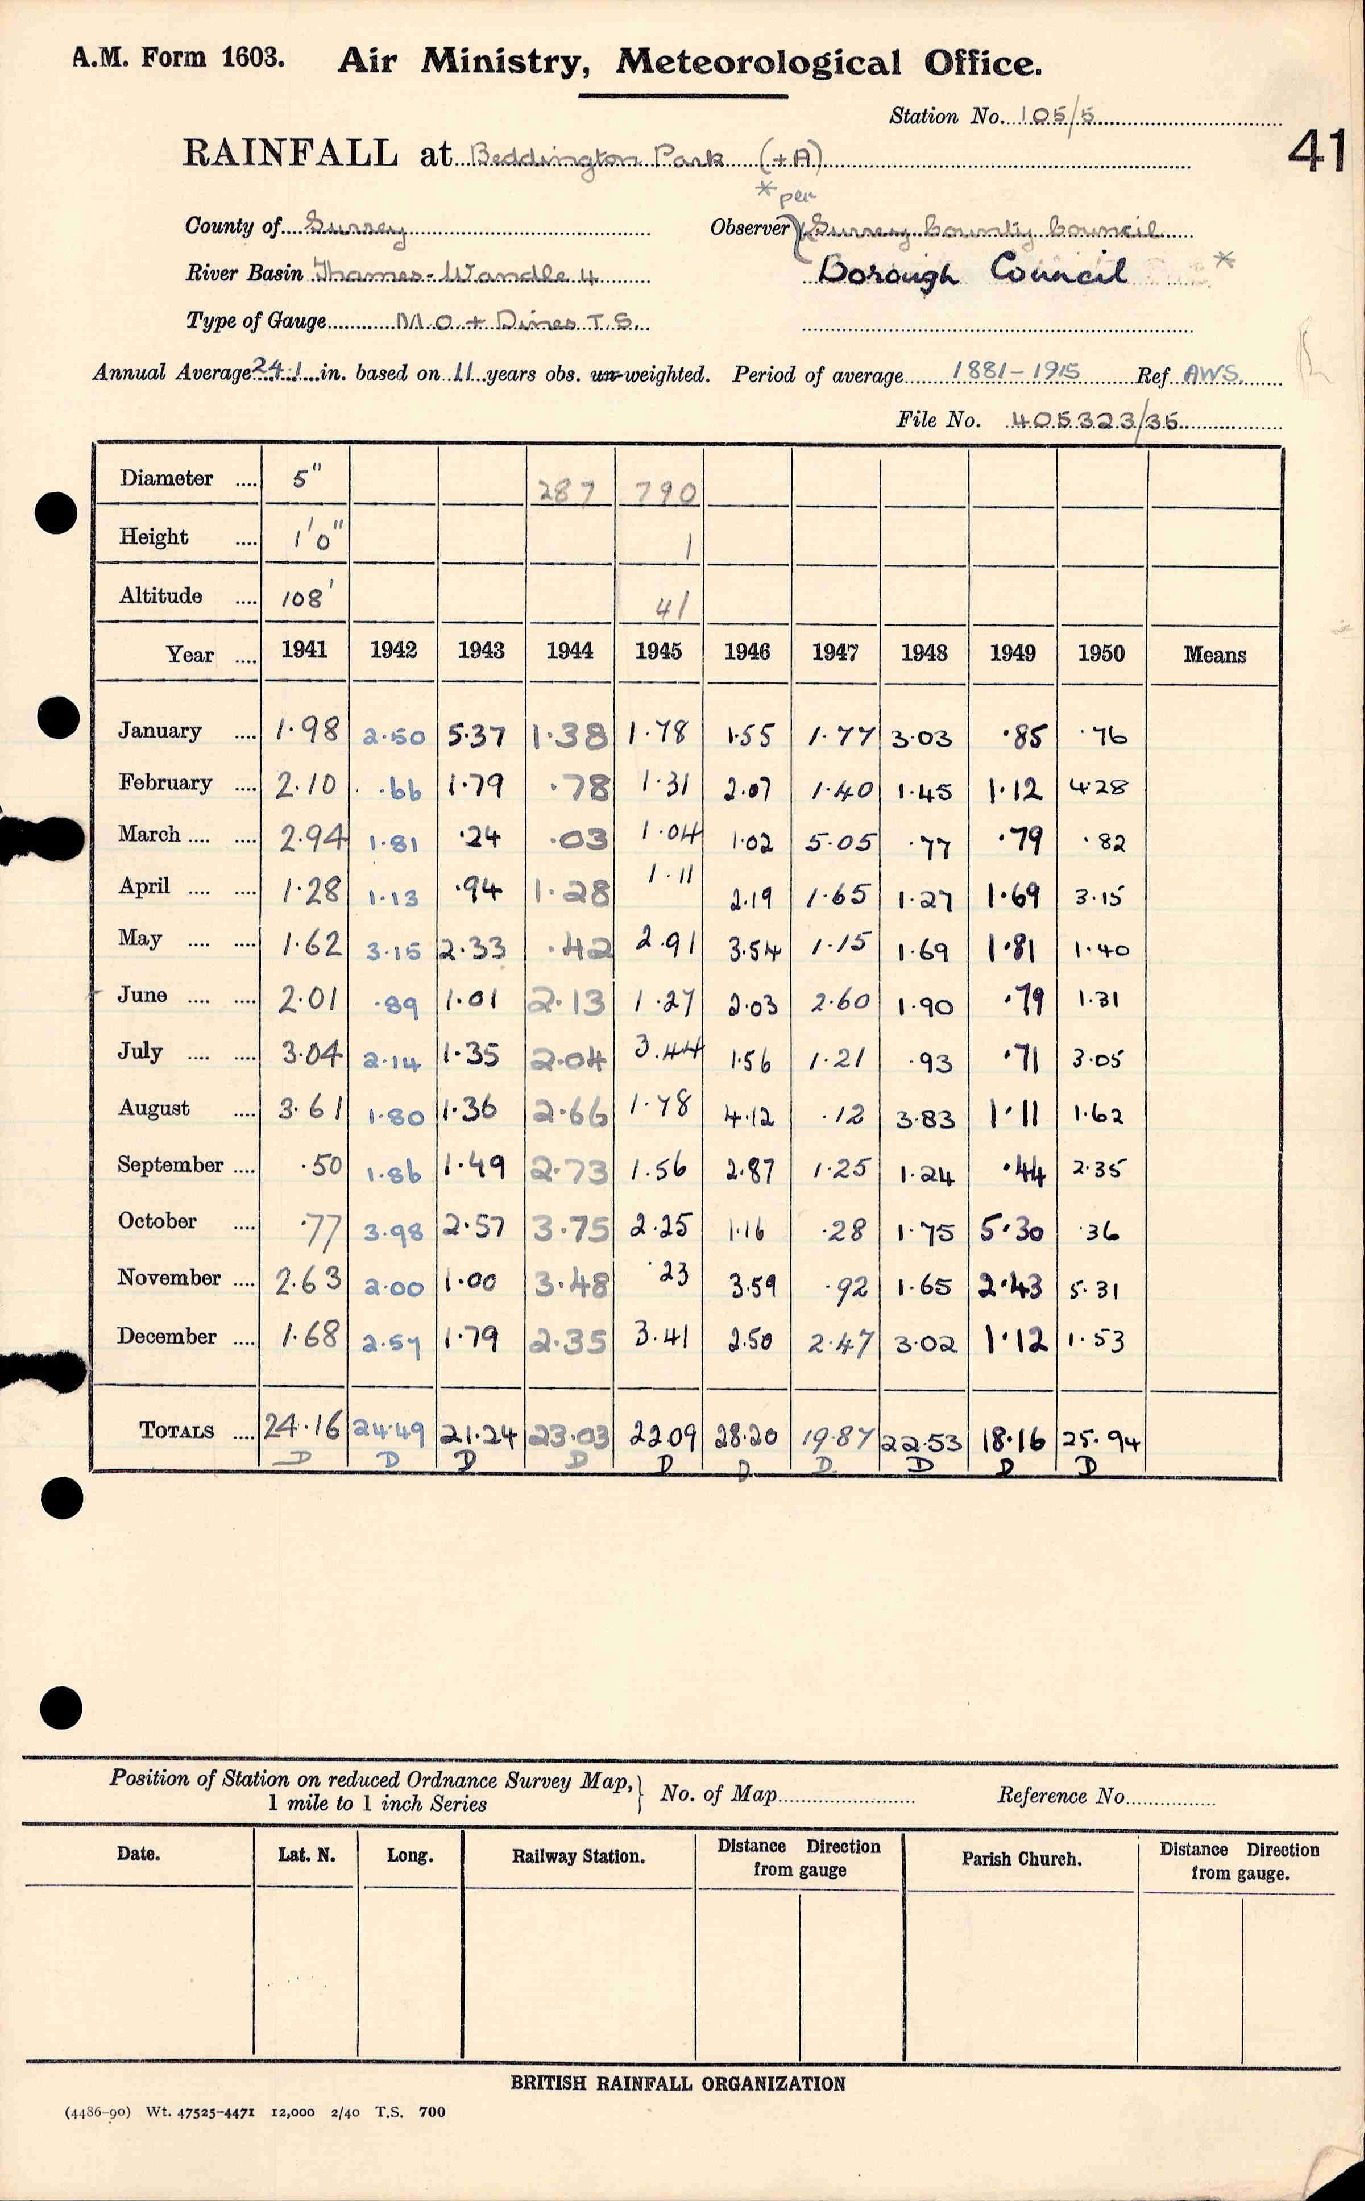 A.M. Form 1603. Air Ministry, Meteorological Office.
Station No. 105/5
RAINFALL at Beddington Park (+A)
41
* per
County of Surrey Observer Surrey County Council
River Basin Thames-Wandle 4 Borough Council *
Type of Gauge M.O + Dines T.S.
Annual Average 24.1 in. based on 11 years obs. un-weighted. Period of average 1881-1915 Ref AWS.
File No. 405323/35
Diameter .... 5" 287 790
Height .... 1'0" 1
Altitude .... 108' 41
Year .... 1941 1942 1943 1944 1945 1946 1947 1948 1949 1950 Means
January .... 1.98 2.50 5.37 1.38 1.78 1.55 1.77 3.03 .85 .76
February .... 2.10 .66 1.79 .78 1.31 2.07 1.40 1.45 1.12 4.28
March .... .... 2.94 1.81 .24 .03 1.04 1.02 5.05 .77 .79 .82
April .... .... 1.28 1.13 .94 1.28 1.11 2.19 1.65 1.27 1.69 3.15
May .... .... 1.62 3.15 2.33 .42 2.91 3.54 1.15 1.69 1.81 1.40
June .... .... 2.01 .89 1.01 2.13 1.27 2.03 2.60 1.90 .79 1.31
July .... .... 3.04 2.14 1.35 2.04 3.44 1.56 1.21 .93 .71 3.05
August .... 3.61 1.80 1.36 2.66 1.78 4.12 .12 3.83 1.11 1.62
September .... .50 1.86 1.49 2.73 1.56 2.87 1.25 1.24 .44 2.35
October .... .77 3.98 2.57 3.75 2.25 1.16 .28 1.75 5.30 .36
November .... 2.63 2.00 1.00 3.48 .23 3.59 .92 1.65 2.43 5.31
December .... 1.68 2.57 1.79 2.35 3.41 2.50 2.47 3.02 1.12 1.53
TOTALS .... 24.16 24.49 21.24 23.03 22.09 28.20 19.87 22.53 18.16 25.94
D D D D D D D D D D
Position of Station on reduced Ordnance Survey Map,} No. of Map Reference No.
1 mile to 1 inch Series
Date. Lat. N. Long. Railway Station. Distance Direction from gauge Parish Church. Distance Direction from gauge.
BRITISH RAINFALL ORGANIZATION
(4486-90) Wt. 47525-4471 12,000 2/40 T.S. 700